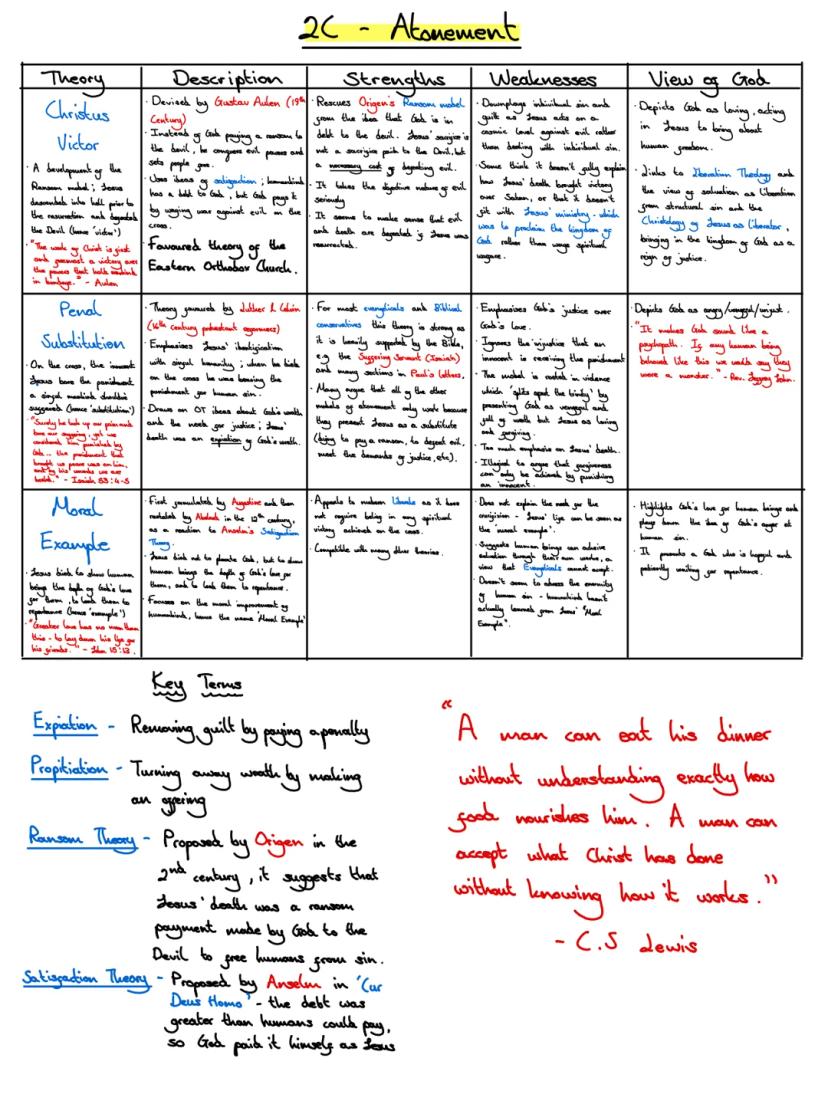 2C - Atonement
Theory
Description
Strengths
Weaknesses
View of God
Christus
Victor
· A development of the
Ransom model; Jesus
descended into hell prior to
the resurrection and defeated
the Devil (hence 'victor')
· "The work of Christ is first
and foremost a victory over
the powers that hold mankind
in bondage." - Aulen
· Devised by Gustav Aulen (19th
Century)
· Instead of God paying a ransom to
the devil, he conquers evil powers and
sets people free.
· Uses ideas of satisfaction; humankind
has a debt to God, but God pays it
by waging war against evil on the
cross.
· Favoured theory of the
Eastern Orthodox Church.
· Rescues Origen's Ransom model
from the idea that God is in
debt to the devil. Jesus' sacrifice is
not a sacrifice paid to the Devil, but
a necessary cost of defeating evil.
· It takes the objective nature of evil
seriously
· It seems to make sense that evil
and death are defeated if Jesus was
resurrected.
· Downplays individual sin and
guilt as Jesus acts on a
cosmic level against evil rather
than dealing with individual sin.
· Some think it doesn't fully explain
how Jesus' death bought victory
over Satan, or that it doesn't
fit with Jesus' ministry - which
was to proclaim the kingdom of
God rather than wage spiritual
warfare.
· Depicts God as loving, acting
in Jesus to bring about
human freedom.
· Links to Liberation Theology and
the view of salvation as liberation
from structural sin and the
Christology of Jesus as liberator,
bringing in the kingdom of God as a
reign of justice.
Penal
Substitution
· On the cross, the innocent
Jesus bore the punishment
a sinful mankind should've
suffered (hence 'substitution')
· "Surely he took up our pain and
bore our suffering, yet we
considered him punished by
God... the punishment that
brought us peace was on him,
and by his wounds we are
healed." - Isaiah 53:4-5
· Theory favoured by Luther & Calvin
(16th century protestant reformers)
· Emphasises Jesus' identification
with sinful humanity; when he died
on the cross he was bearing the
punishment for human sin.
· Draws on OT ideas about God's wrath
and the need for justice; Jesus'
death was an expiation of God's wrath.
· For most evangelicals and Biblical
conservatives this theory is strong as
it is heavily supported by the Bible,
e.g the Suffering Servant (Isaiah)
and many sections in Paul's letters.
· Many argue that all of the other
models of atonement only work because
they present Jesus as a substitute
(dying to pay a ransom, to defeat evil,
meet the demands of justice, etc).
· Emphasises God's justice over
God's love.
· Ignores the injustice that an
innocent is receiving the punishment
· The model is rooted in violence
which 'splits apart the trinity' by
presenting God as vengeful and
full of wrath but Jesus as loving
and forgiving.
· Too much emphasis on Jesus' death.
· Illogical to argue that forgiveness
can only be achieved by punishing
an innocent.
· Depicts God as angry/vengeful/unjust.
· "It makes God sound like a
psychopath. If any human being
behaved like this we would say they
were a monster." - Rev. Jeffrey John.
Moral
Example
· Jesus died to show human
beings the depth of God's love
for them, to lead them to
repentance (hence 'example')
· "Greater love has no man than
this - to lay down his life for
his friends." - John 15:13.
· First formulated by Augustine and then
restated by Abelard in the 12th century,
as a reaction to Anselm's Satisfaction
Theory.
· Jesus died not to placate God, but to show
human beings the depth of God's love for
them, and to lead them to repentance.
· Focuses on the moral improvement of
humankind, hence the name 'Moral Example'
· Appeals to modern liberals as it does
not require belief in any spiritual
victory achieved on the cross.
· Compatible with many other theories.
· Does not explain the need for the
crucifixion - Jesus' life can be seen as
the 'moral example'.
· Suggests human beings can achieve
salvation through their own works, a
view that Evangelicals cannot accept.
· Doesn't seem to address the enormity
of human sin - humankind hasn't
actually learned from Jesus' "Moral
Example".
· Highlights God's love for human beings and
plays down the idea of God's anger at
human sin.
· It presents a God who is hopeful and
patiently waiting for repentance.
Key Terms
Expiation - Removing guilt by paying a penalty
Propitiation - Turning away wrath by making
an offering
Ransom Theory - Proposed by Origen in the
2nd century, it suggests that
Jesus' death was a ransom
payment made by God to the
Devil to free humans from sin.
Satisfaction Theory - Proposed by Anselm in 'Cur
Deus Homo' - the debt was
greater than humans could pay,
so God paid it himself as Jesus
"A man can eat his dinner
without understanding exactly how
food nourishes him. A man can
accept what Christ has done
without knowing how it works."
- C.S Lewis